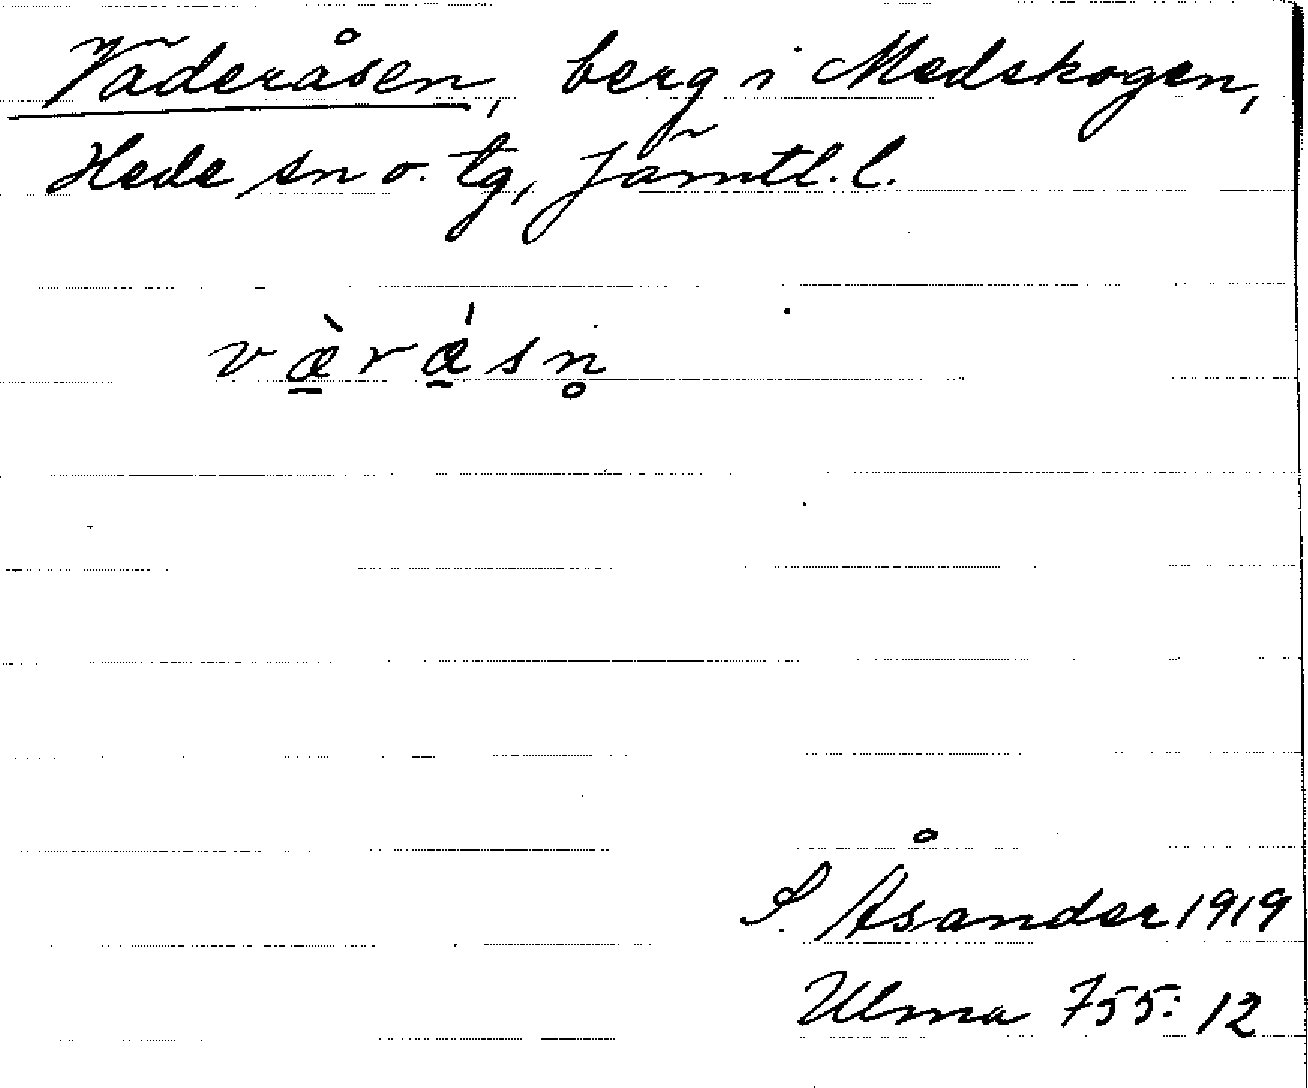 Väderåsen, berg i Medskogen,
Hede sn o. tg, Jämtl. l.
væ̱̀rǽ̱sn̥
S. Åsander 1919
Ulma 755: 12